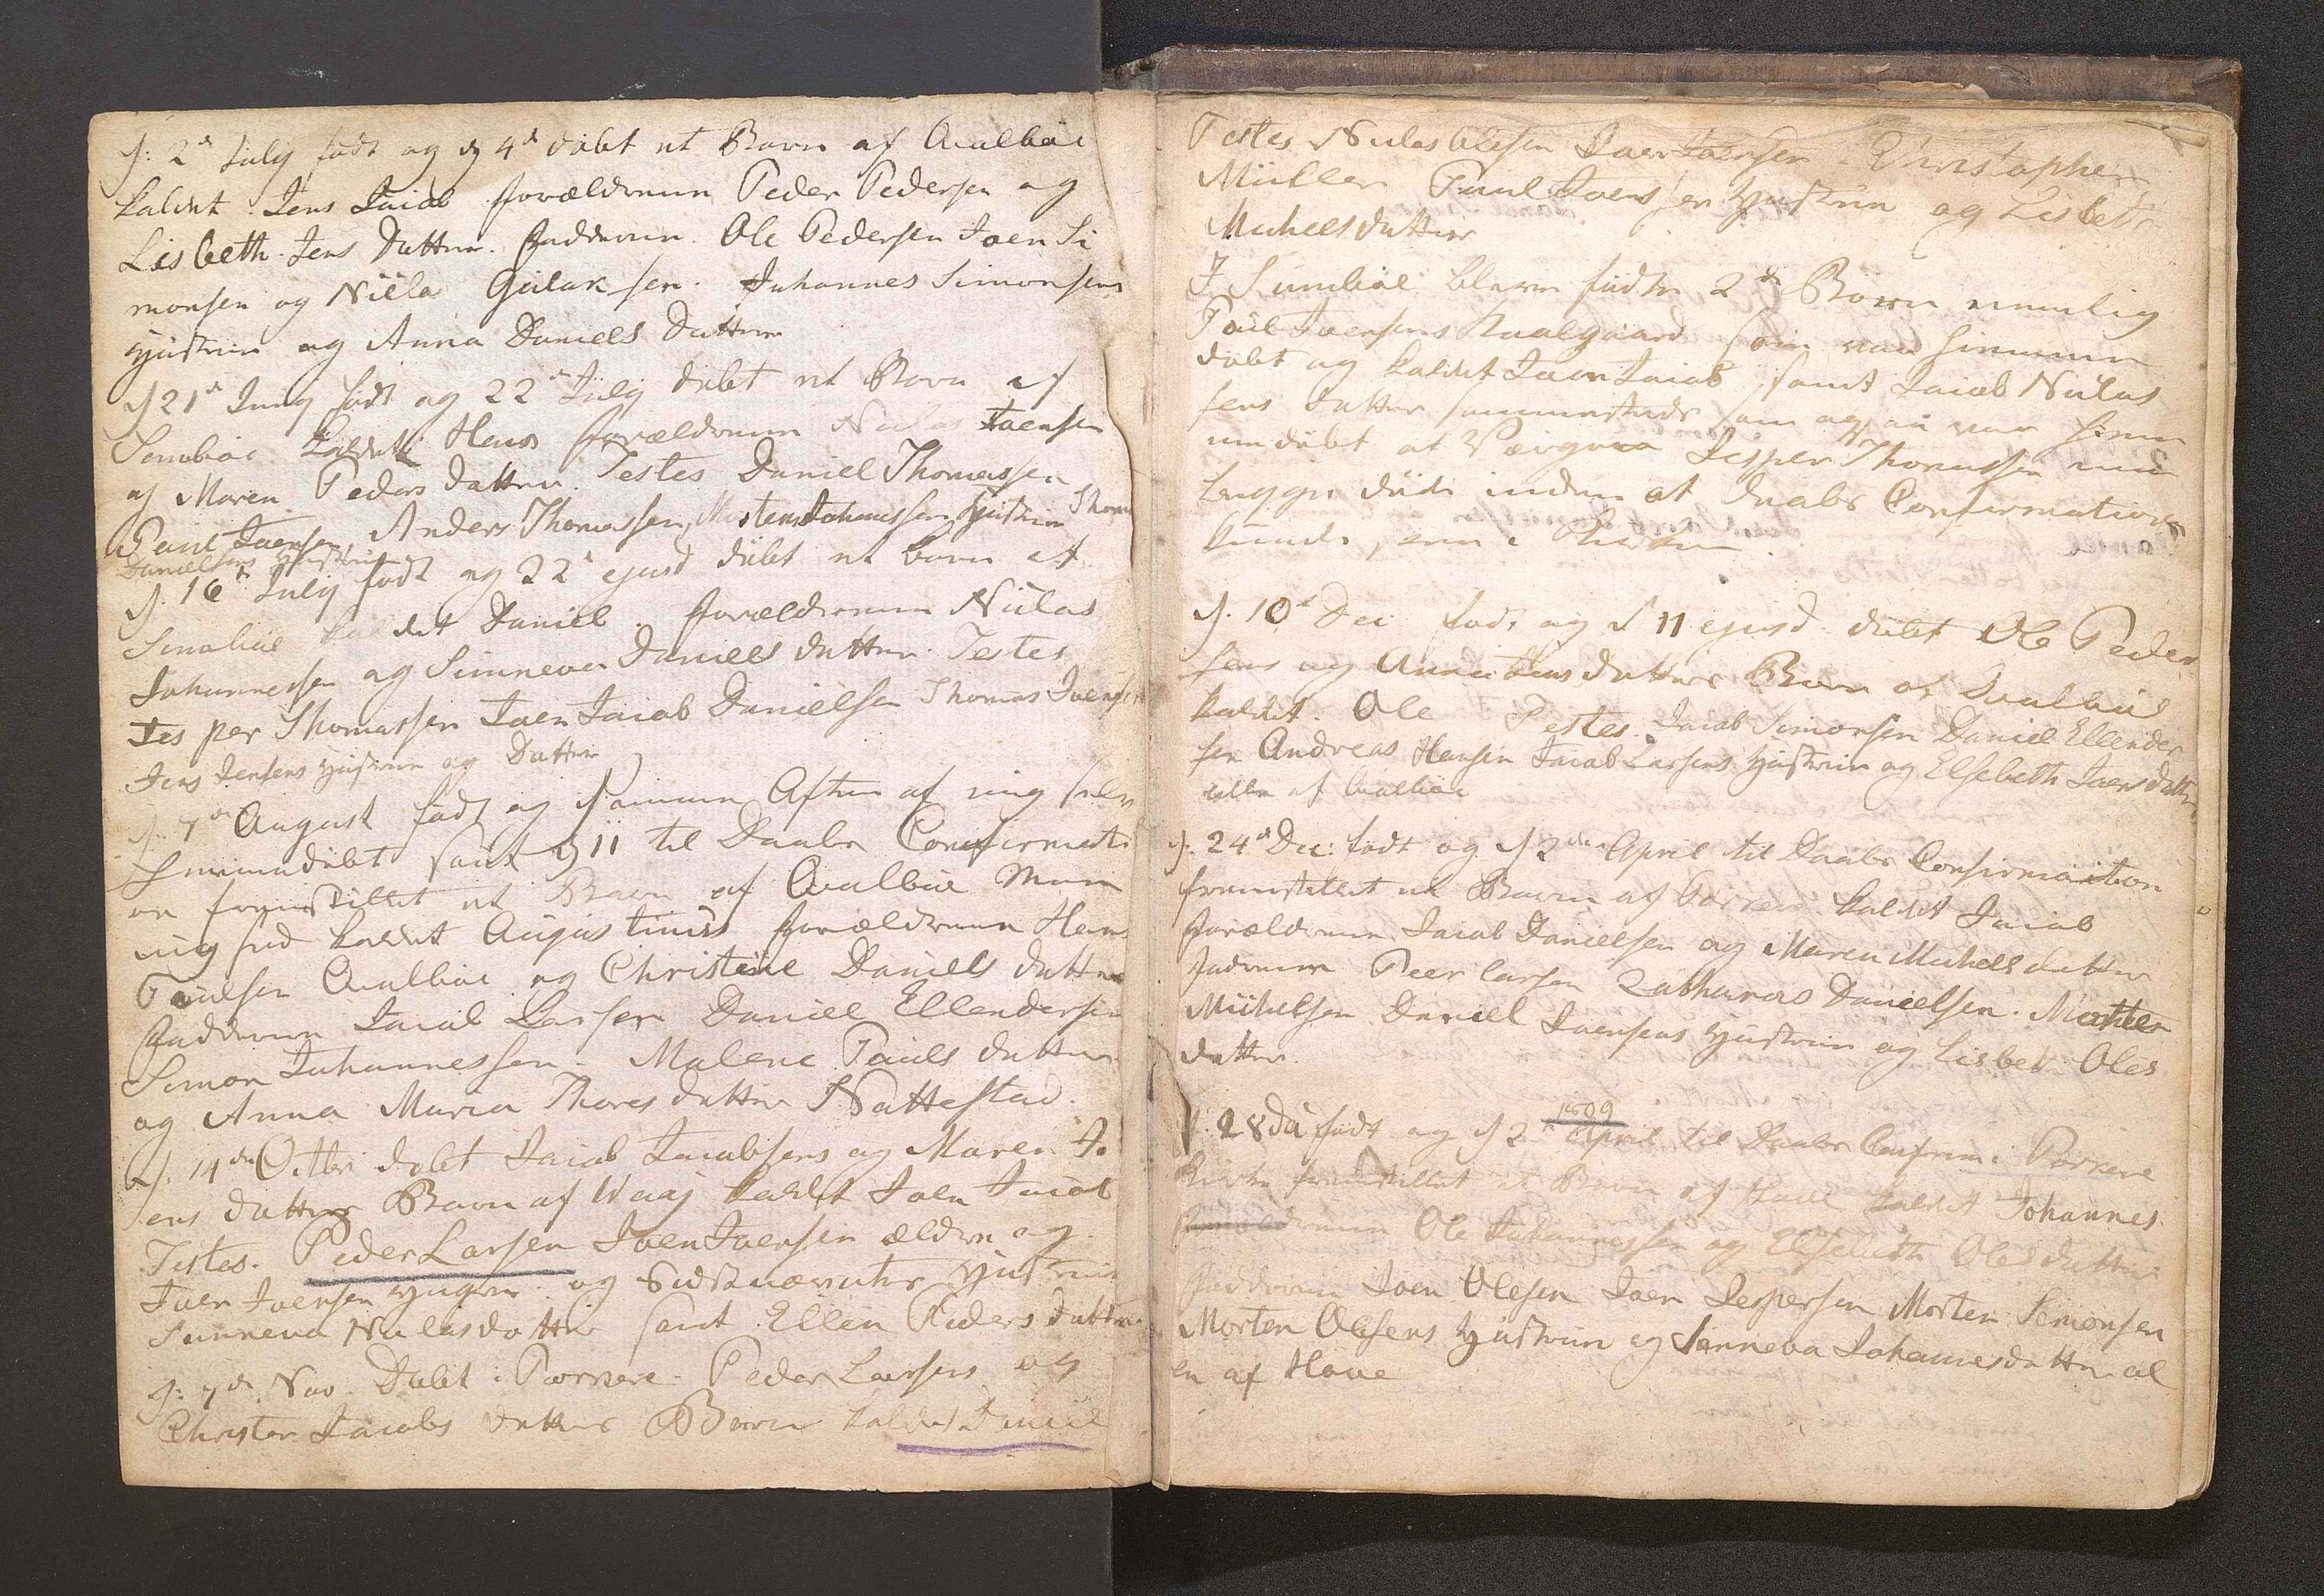 d: 2d July født og d 4d døbt et Barn af Qualbøe
kaldet Jens Jacob forældrene Peder Pedersen og
Lisbeth Jens Datter. Fadderne. Ole Pedersen Joen Si
monsen og Niels Gulaksen. Johannes Simonsens
Hustrue og Anna Daniels Datter
d 21d Juny født og 22d July døbt et Barn af
Sumbøe kaldet Hans forældrene Niclas Joensen
og Maren Peders datter. Testes Daniel Thomassen
Poul Joensen, Anders Thomassen, Morten Johannessen Hustrue Thom
Danielsens Hustrue
d. 16d July født og 22d ejusd døbt et barn af
Sumbøe kaldet Daniel. forældrene Niclas
Johannessen og Sunneva Daniels datter. Testes
Jesper Thomassen Joen Jacob Danielsen Thomas Joensen
Jens Jensens Hustrue og Datter
d. 7de August født og samme Aften af mig selv
hiemmedøbt samt d 11 til Daabs Confirmati
on fremstillet et Barn af Qualbøe
kaldet Augustinus forældrene Hans
Poulsen Qualbøe og Christine Daniels datter
Fadderne Jacob Larsen Daniel Ellendersen
Simon Johannessen. Malene Pouls datter
og Anna Maria Thores datter Nattestad.
d. 14de Octbr døbt Jacob Jacobsens og Maren Jo
ens datters Barn af Waag kaldet Joen Jacob
Testes. Peder Larsen Joen Joensen ældre og
Joen Joensen yngre. og Sidstnævntes Hustrue
Sunneva Niclasdatter samt Ellen Peders datter
d: 7de Nov. Døbt i Porkere Peder Larsens og
Christen Jacobs datters Barn kaldet Daniel
Testes Niclas Olesen Joen Joensen Christopher
Müller Poul Joensens Hustrue og Lisbeth
Michelsdatter
I Sumbøe bleve fødte 2de Børn nemlig
Poul Joensens Haalgaard som var hiemme
døbt og kaldet Joen Jacob, samt Jacob Niclas
sens datter sammesteds som og var hiem
medøbt af Jesper Thomassen men
begge døde inden at Daabs Confirmation
kunde
d. 10d Dec født og d 11 ejusd. døbt Ole Peder
sens og Anna Jens datters Barn af Qualbøe
kaldet. Ole Testes. Jacob Simonsen Daniel Ellender
sen Andreas Hansen Jacob Larsens Hustrue og Elsebeth Joens datter
alle af Qualbøe
d. 24d Dec: født og d 2den April til Daabs Confirmation
fremstillet et Barn af Porkere kaldet Jacob
forældrene Jacob Danielsen og Maren Michels datter
Fadderne Peer Larsen Zacharias Danielsen. Morten
Michelsen Daniel Joensens Hustrue og Lisbeth Oles
datter.
1809
d. 28 Do født og d 2d April til Daabs Confirm: i Porkere
Kirke fremstillet et Barn af Hove kaldet Johannes
forældrene Ole Johannessen og Elsebeth Oles datter
Fadderne Joen Olesen Joen Jespersen Morten Simonsen
Morten Olesens Hustrue og Sunneva Johannesdatter al
le af Hove